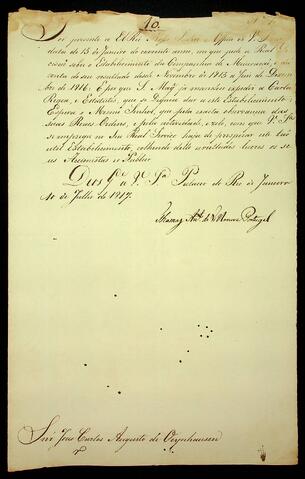 10.
Foi presente a ElRei Nosso Senhor o Officio de V. S.
data de 13 de Janeiro do corrente anno, em que pede a Real
cisão sobre o Estabelecimento da Companhia de Mineração, e dá
conta do seu resultado desde Novembro de 1815 a fim de Dezem
bro de 1816. E por que S. Mag.e já mandou expedir a Carta
Regia, e Estatutos, que se dignou dar a este Estabelecimento:
Espera o Mesmo Senhor, que pela exacta observancia das
Suas Reaes Ordens, e pela actividade, e zelo, com que V. S.a
se emprega no Seu Real Serviço haja de prosperar un tão
util Estabelecimento, colhendo delle avultados lucros os se
us Accionistas e o Publico.
Deos G.e a V. S.a Palacio do Rio de Janeiro
10 de Julho de 1817.
Thomaz Ant.o de V.a Nova Portugal
Snr. João Carlos Augusto de Oeynhausen